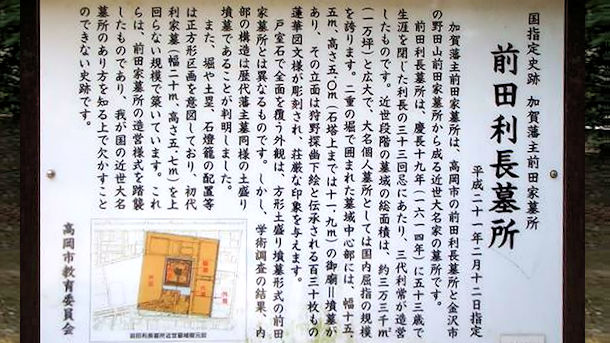 国指定史跡 加賀藩主前田家墓所
前田利長墓所
平成二十一年二月十二日指定
加賀藩主前田家墓所は、高岡市の前田利長墓所と金沢市
の野田山前田家墓所から成る近世大名家の墓所です。
前田利長墓所は、慶長十九年(一六一四年)に五十三歳で
生涯を閉じた利長の三十三回忌にあたり、三代利常が造営
したものです。近世段階の墓域の総面積は、約三万三千㎡
(一万坪)と広大で、大名個人墓所としては国内屈指の規模
を誇ります。二重の堀で囲まれた墓域中心部には、幅十五.
五m、高さ五.〇m(石塔上までは十一.九m)の御廟=墳墓が
あり、その立面は狩野探幽下絵と伝承される百三十枚もの
蓮華図文様が彫刻され、荘厳な印象を与えます。
戸室石で全面を覆う外観は、方形土盛り墳墓形式の前田
家墓所とは異なるものです。しかし、学術調査の結果、内
部の構造は歴代藩主墓同様の土盛り
墳墓であることが判明しました。
また、堀や土塁、石燈籠の配置等
は正方形区画を意図しており、初代
利家墓(幅二十m、高さ五.七m)を上
回らない規模で築いています。これ
らは、前田家墓所の造営様式を踏襲
したものであり、我が国の近世大名
墓所のあり方を知る上で欠かすこと
のできない史跡です。
前田利長墓所近世墓域復元図
高岡市教育委員会